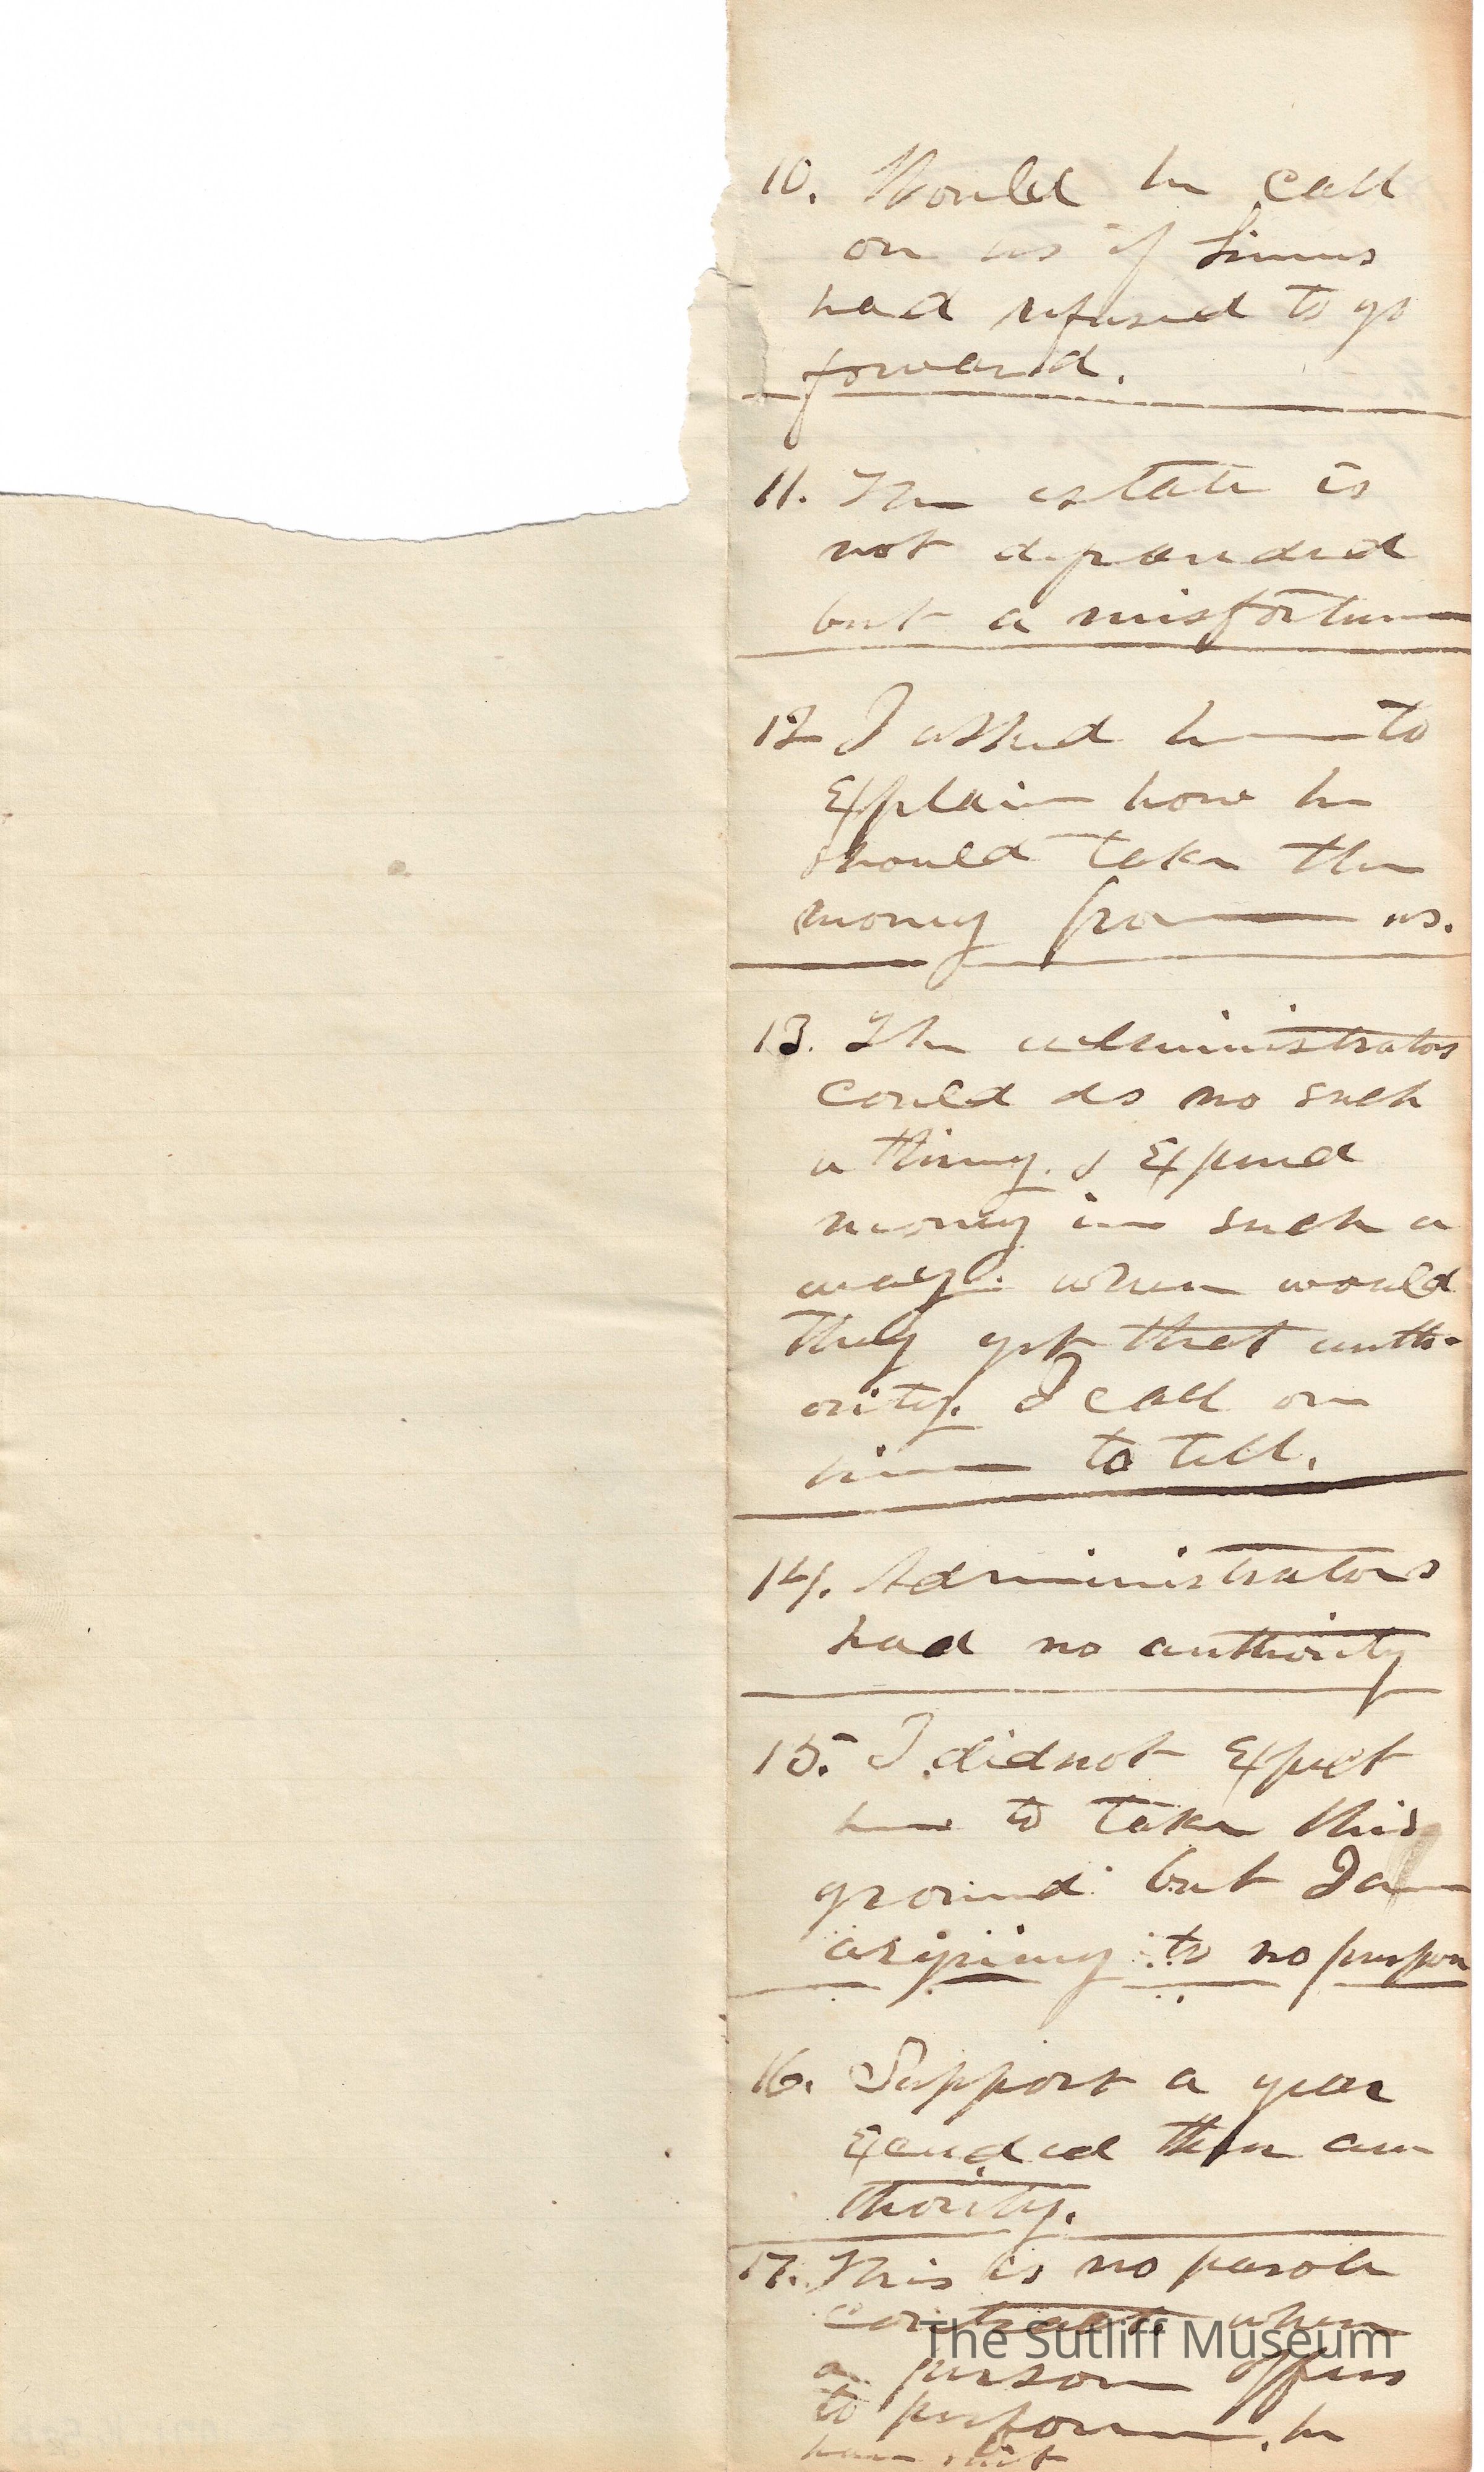 10. Would he call
on us if Simms
had refused to go
forward.
11. The estate is
not depended
but a misfortune
12 I asked him to
Explain how he
should take the
money from us.
13. The administrators
could do no such
a thing. & Expend
money in such a
way. when would
they get that auth-
ority. I call on
him to tell.
14. Administrators
had no authority
15. I did not Expect
him to take this
ground but I am
arguing to no purpose
16. Support a year
their au
thority.
17. This is no parole
contract when
a person offers
to perform. he